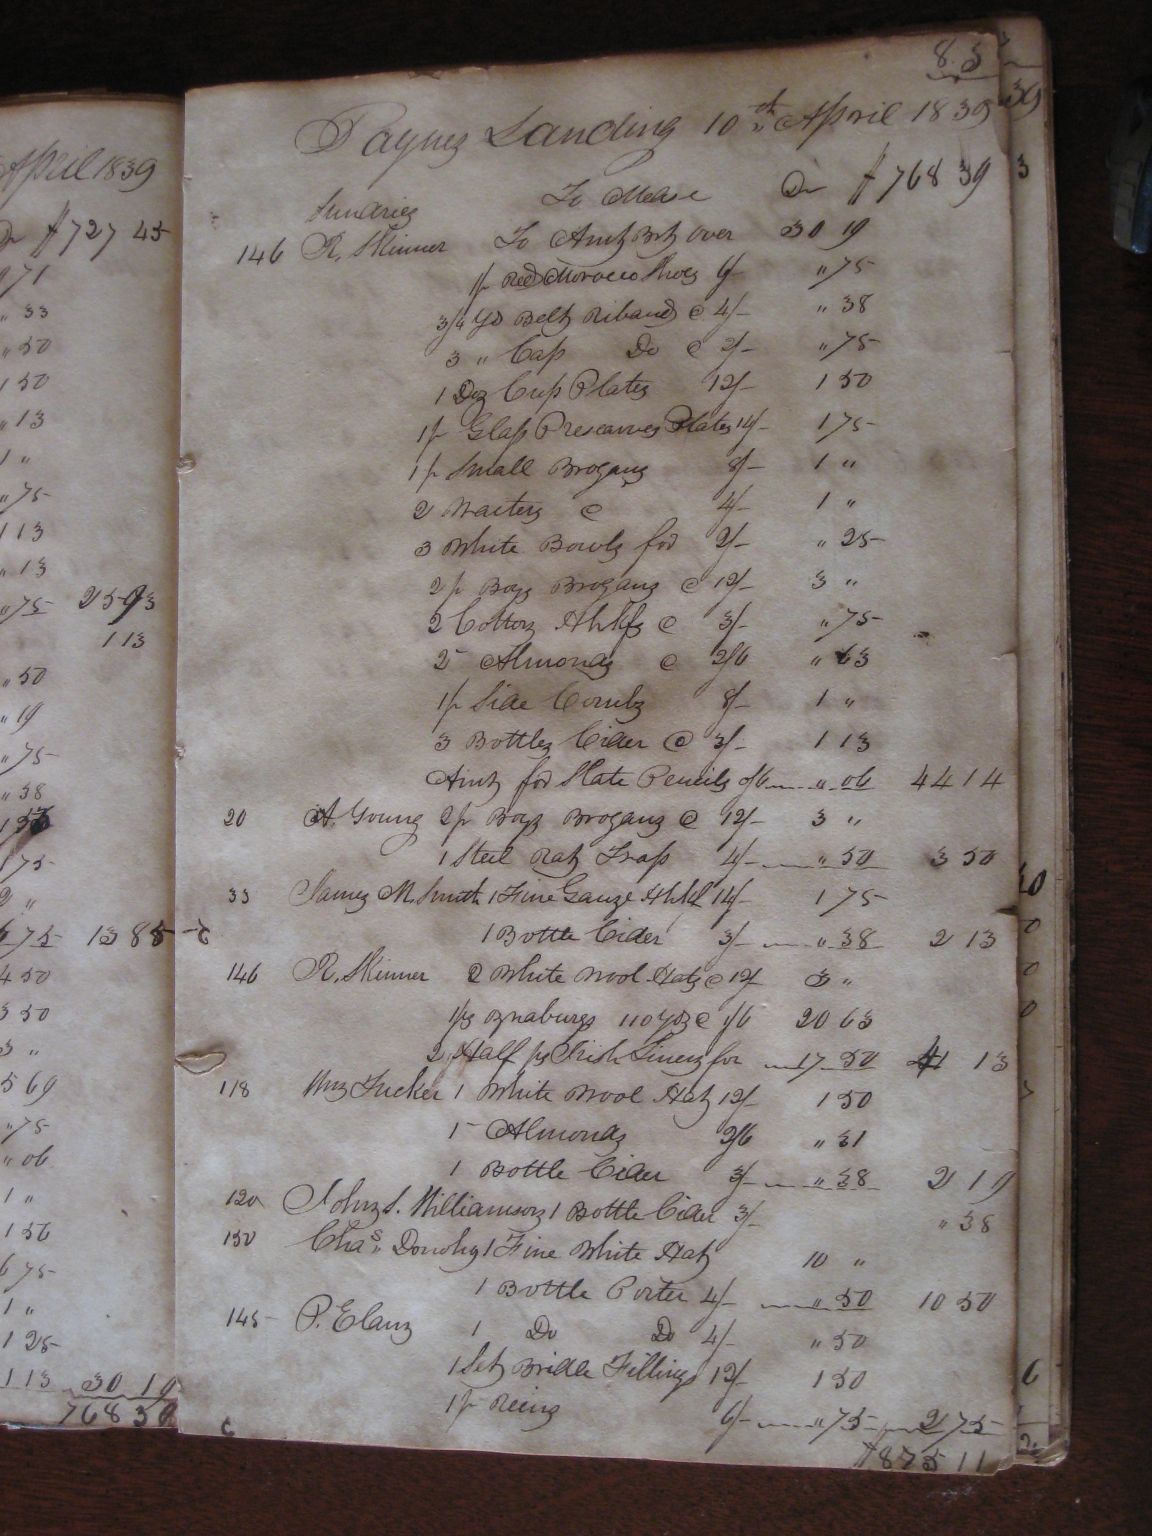 April 1839
Dr $727 45
"71
" 33
" 50
1 50
" 13
1 "
" 75
1 13
" 13
" 75 25 93
1 13
" 50
" 19
" 75
" 38
1 75
2 "
75 13 88
4 50
3 50
3 "
5 69
" 75
" 06
1 "
1 56
6 75
1 "
1 25
1 13 30 19
768 39
83
Paynes Landing 10th April 1839
Sundries To Mdse Dr $768 39
146 R. Skinner To Amt Brt over 30 19
1 pr Red Morocco Shoes 6/- " 75
3/4 Yd Belt Riband @ 4/- " 38
3 " Cap Do @ 2/- " 75
1 Doz Cup Plates 12/- 1 50
1 pr Glass Presarves Plates 14/- 1 75
1 pr Small Brogans 8/- 1 "
2 Waiters @ 4/- 1 "
3 White Bowls for 2/- " 25
2 pr Boys Brogans @ 12/- 3 "
2 Cotton Hhkfs @ 3/- " 75
2 Almonds @ 2/6 " 63
1 pr Side Combs 8/- 1 "
3 Bottles Cider @ 3/- 1 13
Amt for Slate Pencils /6 " 06 44 14
20 A. Young 2 pr Boys Brogans @ 12/- 3 "
1 Steel Rat Trap 4/- " 50 3 50
33 James M. Smith 1 Fine Gauze Hhkf 14/- 1 75
1 Bottle Cider 3/- " 38 2 13
146 R. Skinner 2 White Wool Hats @ 12/- 3 "
1 ps Oznaburgs 110 Yds @ 1/6 20 63
2 Half ps Irish Linens for 17 50 41 13
118 Wm Tucker 1 White Wool Hat 12/- 1 50
1 Almonds 2/6 " 31
1 Bottle Cider 3/- " 38 2 19
120 John S. Williamson 1 Bottle Cider 3/- " 38
150 Chas 1 Fine White Hat 10 "
1 Bottle Porter 4/- " 50 10 50
145 P. Elans 1 Do Do 4/- " 50
1 Set Bridle Fillings 12/- 1 50
1 pr Reins 6/- " 75 2 75
$875 11